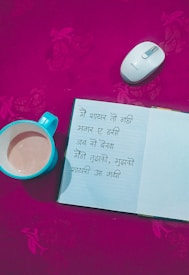 मैं शायर तो नहीं
मगर ए हसीं
जब से देखा
मैंने तुझको, मुझको
शायरी आ गयी